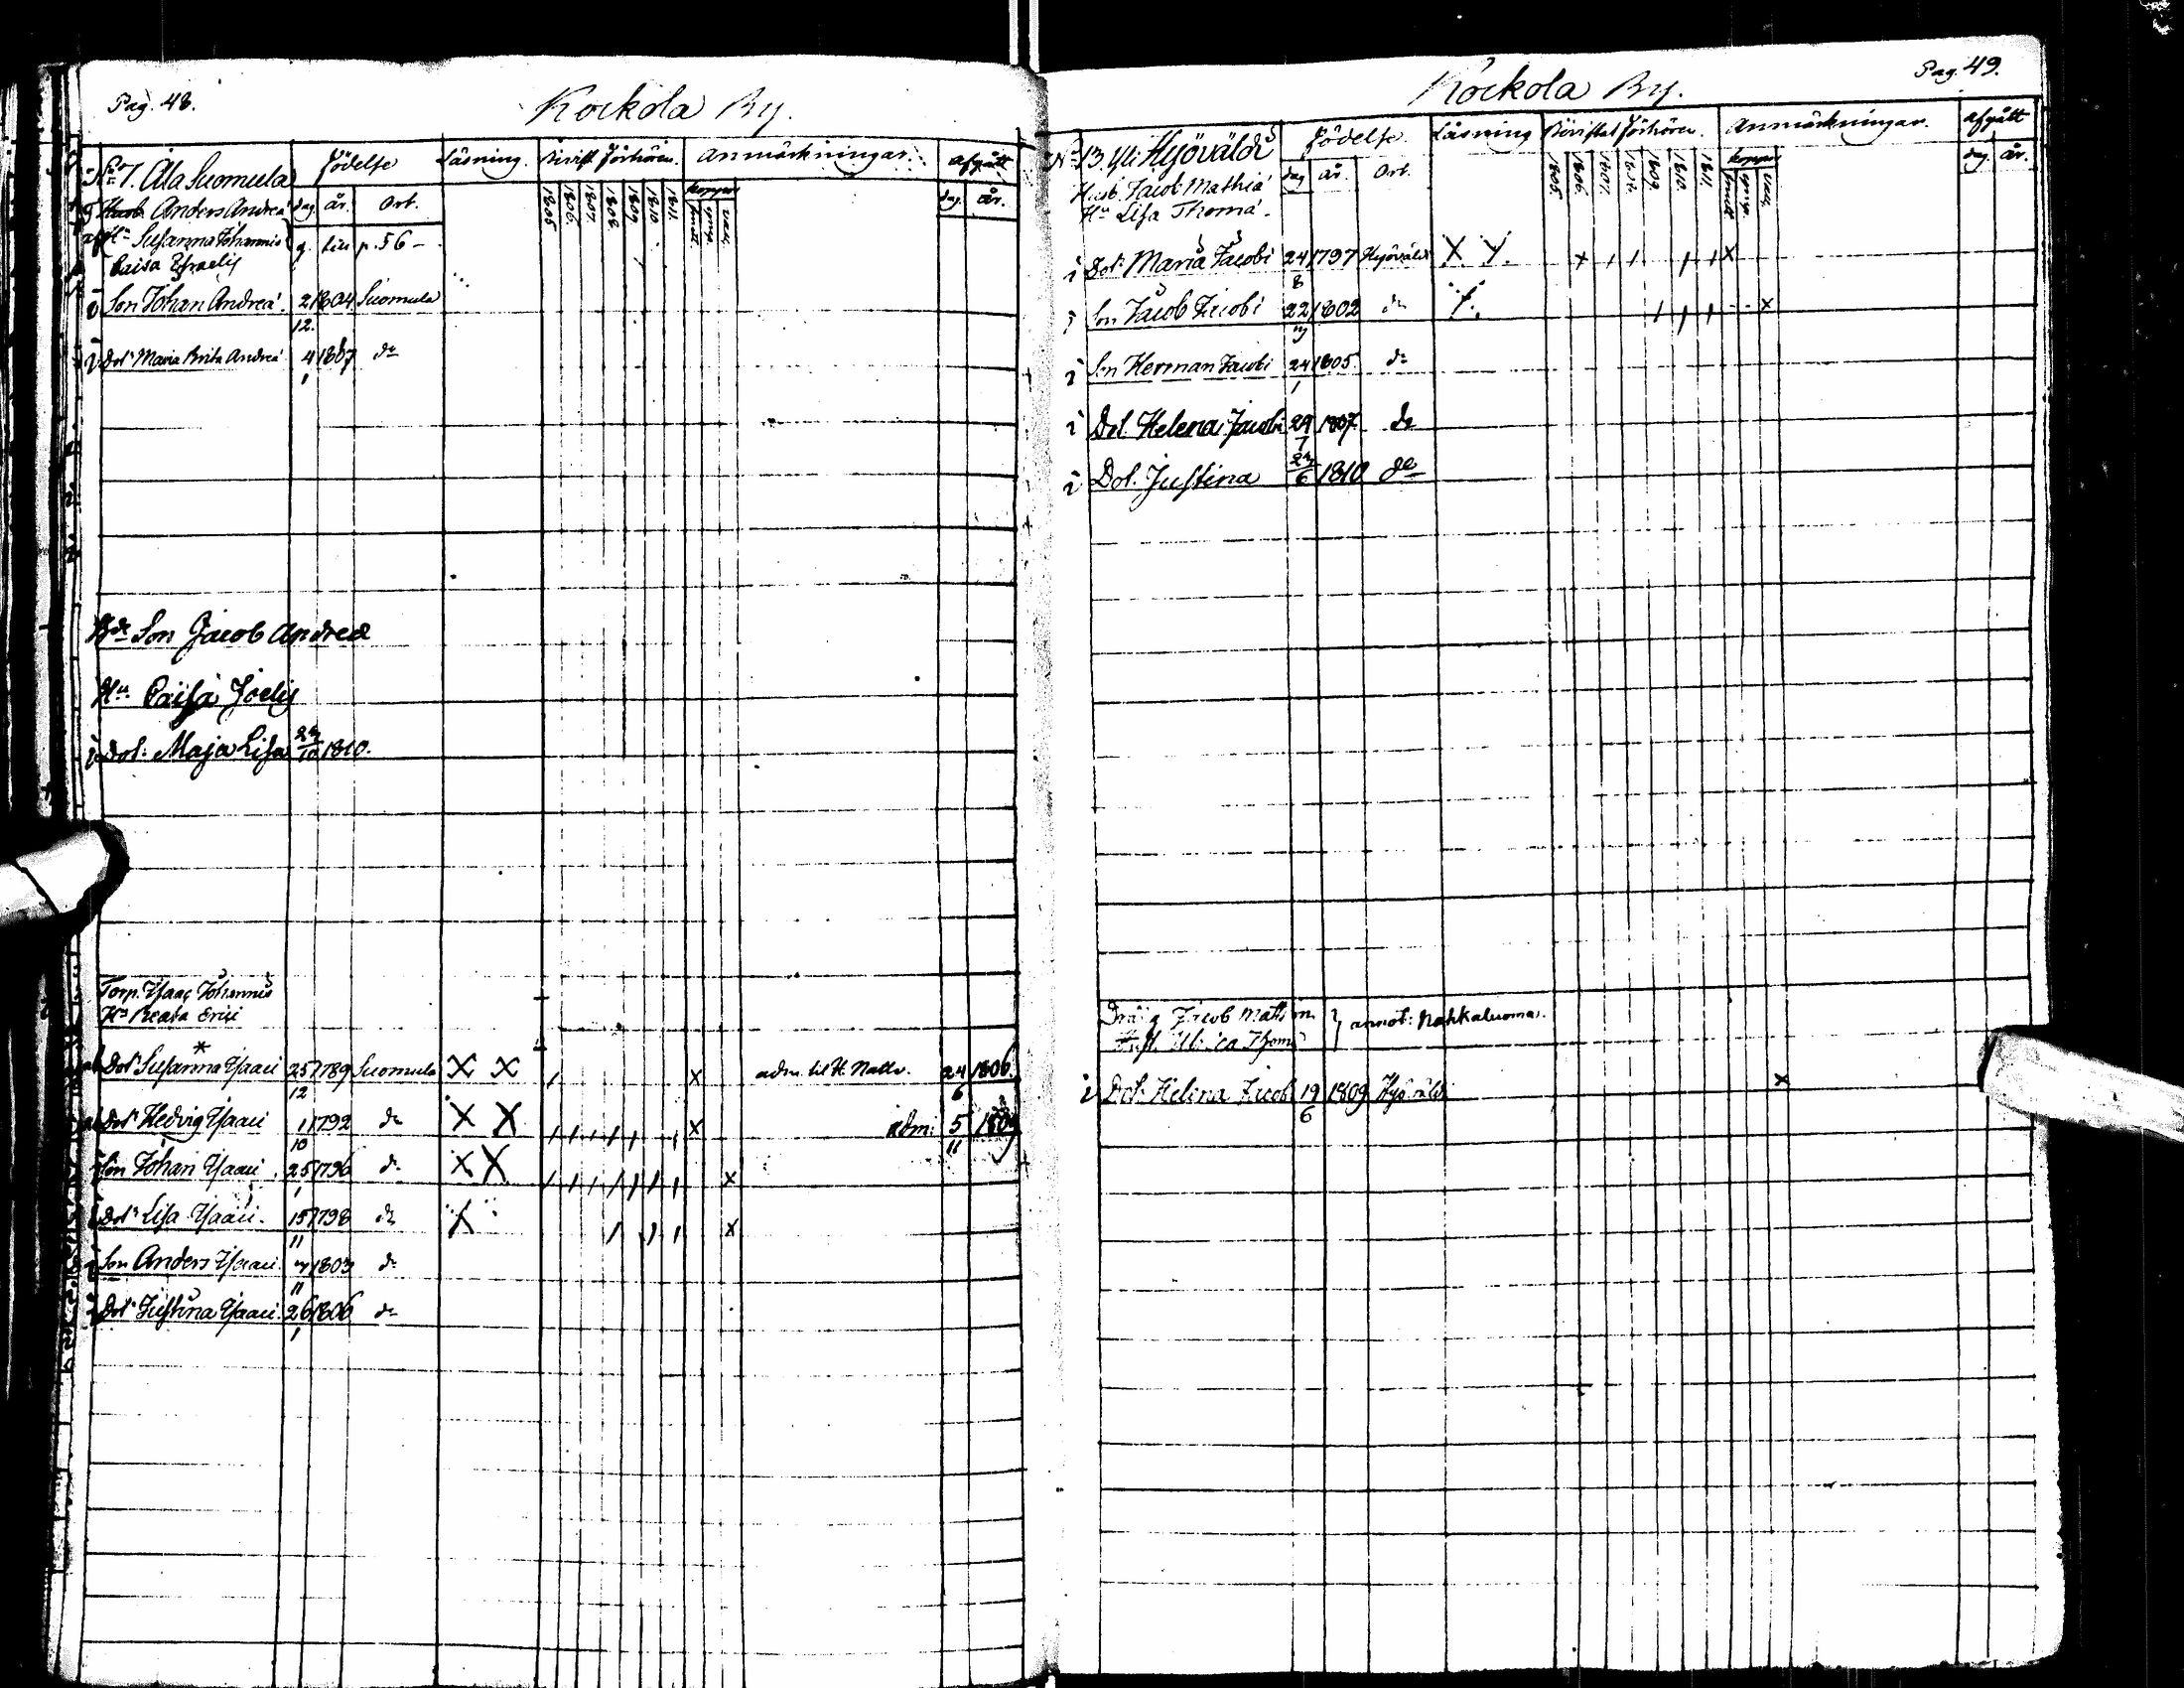 Pag. 48.
Kockola By.
No 7. Ala Suomula
Födelse
Läsning.
Bivist. Förhören.
Anmärkningar.
afgått
dag. år. Ort.
1805 1806. 1807. 1808 1809 1810 1811.
koppor
vacc.
dag. år.
Husb. Anders Andreæ
Hu Susanna Johannis
Caisa Israelis
p. 56 -
Son Johan Andreæ. 2/12. 1804 Suomula
Dotr Maria Brita Andreæ 4/1 1807 do
Son Jacob Andreæ
Hu Caisa Joelis
Dotr: Maja Lisa 1810.
Torp. Isaac Johannis
Hu Beata Erici
Dotr Susanna Isaaci 25/12 1789 Suomula X X / X adm. til H. Nattv. 24/6 1806.
Dotr Hedvig Isaaci 1/10 1792 do X X / / / / / / X adm: 5/11 1809
Son Johan Isaaci 25/1 1796 do X X / / / / / / / X
Dotr Lisa Isaaci. 15/11 1798 do X / / / / X
Son Anders Isaaci. 7/11 1803 do
Dotr Justina Isaaci. 26/1 1806 do
Pag. 49.
Kockola By.
No 13. Yli Hyöväldi
Födelse
Läsning
Bivistat Förhören.
Anmärkningar.
afgått
dag år. Ort.
1805 1806. 1807. 1809. 1810. 1811.
koppor
vacc.
dag. år.
Husb. Jacob Mathiæ
Hu Lisa Thomæ.
Dotr Maria Jacobi 24/8 1797 Hyöväldi X X. + / / / / X
Son Jacob Jacobi 22 1802 do / / / X
Son Herman Jacobi 24/1 1805 do
Dot. Helena Jacobi 29/7 1807. do
Dot. Justina 1810 do
Dräng Jacob Matsson
Thomæ
annot: Nahkaluoma.
Dot. Helena Jacob 19/6 1809 Hyöväldi X